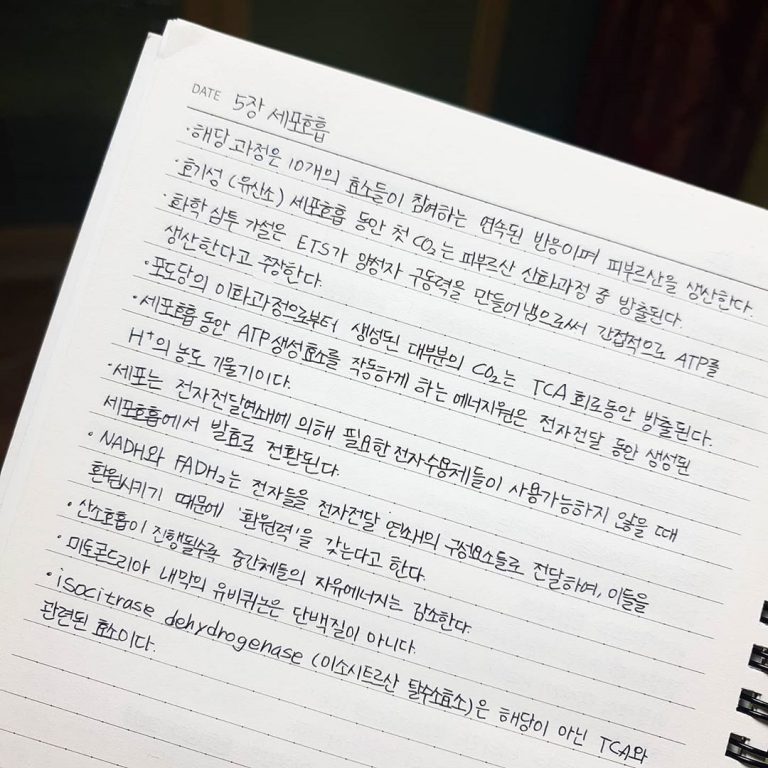 DATE 5장 세포호흡
·해당과정은 10개의 효소들이 참여하는 연속된 반응이며 피부르산을 생산한다.
·호기성 (유산소) 세포호흡 동안 첫 CO₂는 피부르산 산화과정 중 방출된다.
·화학 삼투 가설은 ETS가 양성자 구동력을 만들어 냄으로써 간접적으로 ATP를
생산한다고 주장한다.
·포도당의 이화과정으로부터 생성된 대부분의 CO₂는 TCA 회로동안 방출된다.
·세포호흡 동안 ATP생성효소를 작동하게 하는 에너지원은 전자전달 동안 생성된
H⁺의 농도 기울기이다.
·세포는 전자전달연쇄에 의해 필요한 전자수용체들이 사용가능하지 않을 때
세포호흡에서 발효로 전환된다.
·NADH와 FADH₂는 전자들을 전자전달 연쇄의 구성요소들로 전달하여, 이들을
환원시키기 때문에 '환원력'을 갖는다고 한다.
·산소호흡이 진행될수록 중간체들의 자유에너지는 감소한다.
·미토콘드리아 내막의 유비퀴논은 단백질이 아니다.
·isocitrase dehydrogenase (이소시트르산 탈수소효소)은 해당이 아닌 TCA와
관련된 효소이다.